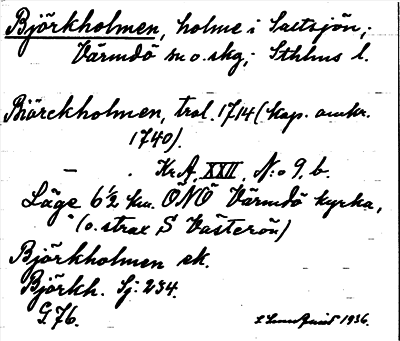 Björkholmen, holme i Saltsjön,
Värmdö sn o. skg, Sthlms l.
Biörckholmen, trol. 1714 (kop. omkr.
1740).
— . Kr.A. XXII, N:o 9, b.
Läge 6½ km. ÖNÖ Värmdö kyrka,
(o. strax S Västerön)
Björkholmen ek.
Björkh. Sj: 234.
G 76.
1936.